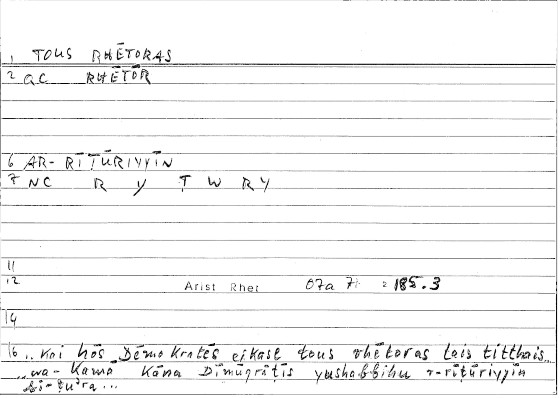 1 TOUS RHĒTORAS
2 QC RHĒTŌR
6 AR-RĪṬŪRIYYĪN
7 NC R Y Ṭ W R Y
11
12 Arist Rhet 07a 7 = 185.3
14
16 .. kai hōs Dēmokratēs eikase tous rhētoras tais titthais..
.. wa-kamā kāna Dīmūqrāṭīs yushabbihu r-rīṭūriyyīn